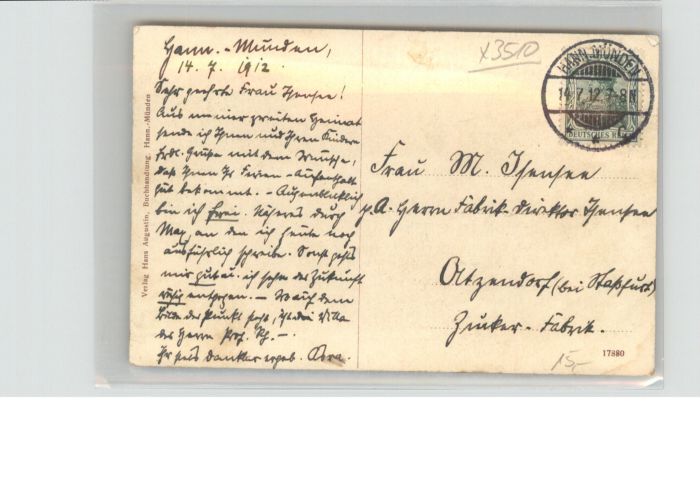 Hann.-Münden,
14.7.1912.
Sehr geehrte Frau Isensee!
Aus meiner zweiten Heimat
sende ich Ihnen und Ihren Kindern
frdl. Grüße mit dem Wunsche,
daß Ihnen Ihr Ferien-Aufenthalt
gut bekommt. - Augenblicklich
bin ich frei. Näheres durch
an den ich heute noch
ausführlich schreibe. Sonst geht's
mir gut u. ich sehe der Zukunft
ruhig entgegen. - Wo auf dem
Bilde der Punkt ist die Villa
des Herrn Prof.
Ihr stets dankbar ergeb.
Verlag Hans Augustin, Buchhandlung, Hann.-Münden
x3510
HANN. MÜNDEN
14.7.12.7-8N
DEUTSCHES REICH
Frau M. Isensee
p.A. Herrn Fabrik-Direktor Isensee
Atzendorf (bei Staßfurt)
Zucker-Fabrik.
17880
15,-